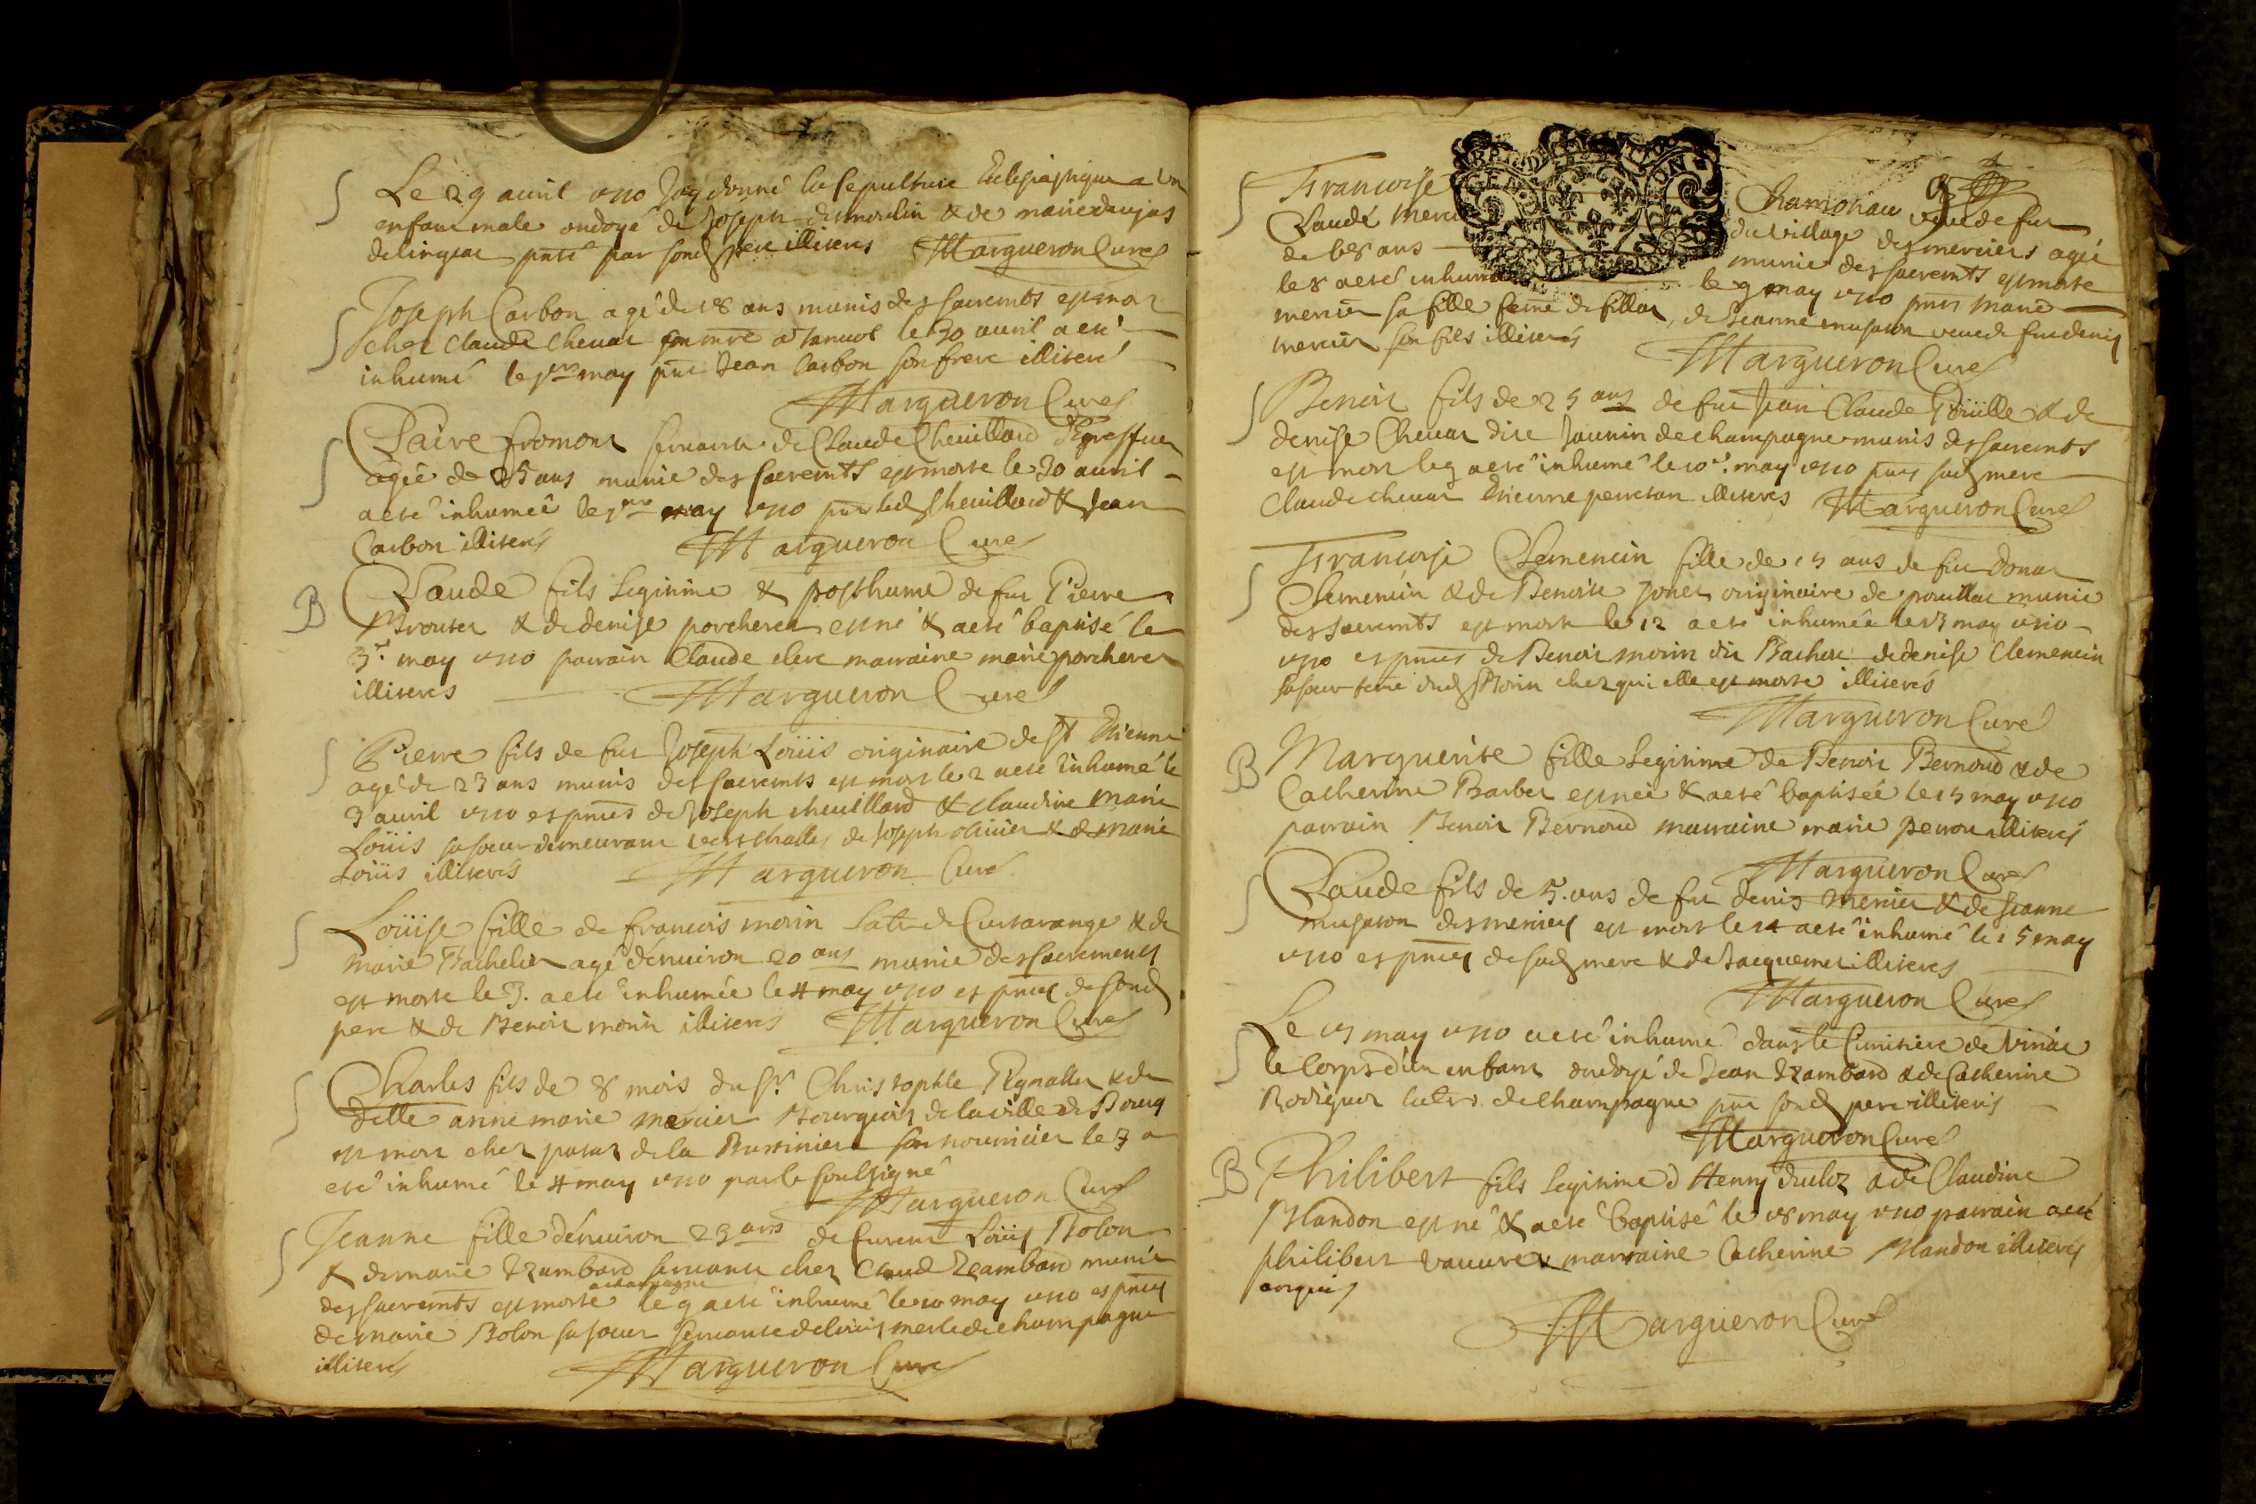 S Le 29 avril 1710 Jay donné la sepulture Eclesiastique a un
enfant male ondoyé de Joseph desmoulin & de marie
pnte par sond pere illiteres Margueron Curé
S Joseph Carbon agé de 18 ans munis des sacremts est mort
chez Claude Chevat son mre a le 30 avril a eté
inhumé le 1er may pnt Jean Carbon son frere illiteré
Margueron Curé
S Claire fromont servante de Claude Cheuillard
agée de 25 ans munie des sacremts est morte le 30 avril
a eté inhumeé le 1er may 1710 pnt led Cheuillard & Jean
Carbon illiterés Margueron Curé
B Claude fils legitime & posthume de fut Pierre
Brouter & de denise porcheret est né & a eté baptisé le
3e. may 1710 parrain Claude clerc marraine marie porcheret
illiterés Margueron Curé
S Pierre fils de fut Joseph Loüis originaire de St Etienne
agé de 23 ans munis des sacremts est mort le 2 a eté inhumé le
3 avril 1710 es pnces de Joseph cheuillard & claudine marie
Loüis sa soeur demeurant vers challes, de Joseph olivier & de marie
Loüis illiterés Margueron Curé
S Loüise fille de francois morin de Cutarange & de
marie Bachelier agé d'énuiron 20 ans munie des sacrements
est morte le 3. a eté inhumée le 4 may 1710 es pnces de sond
pere & de Benoit morin illiterés Margueron Curé
S Charles fils de 8 mois du Sr Christophle & de
delle anne marie mercier Bourgeois de la ville de Bourg
est mort chez de la son nouricier le 3 a
eté inhumé le 4 may 1710 par le soussigné
Margueron Curé
S Jeanne fille d'énuiron 23 ans de Loüis Bolon
& de marie servante chez Claude munie
a champagne
des sacremts est morte le 9 a eté inhumé le 10 may 1710 es pnces
de marie Bolon sa soeur servante de loüis merle de champagne
illiterés Margueron Curé
S Francoise Chamonau veue de fut
Claude merci du village des merciers agée
de 68 ans munie des sacremts est morte
le 8 a eté inhumée le 9 may 1710 pnts marie
mercier sa fille feme de fillon, de Jeanne musaton veue de fut denis
mercier son fils illiterés Margueron Curé
S Benoit fils de 25 ans de fut Jean Claude & de
denise Chevat dite Jaunin de champagne munis des sacremts
est mort le 9 a eté inhumé le 10e. may 1710 pnts sad mere
Claude chevat Etienne illiteres Margueron Curé
S Francoise Clemencin fille de 15 ans de fut Donat
Clemencin & de Benoite originaire de munie
des sacremts est morte le 12 a eté inhumée le 13 may 1710
1710 es pnces de Benoit morin dit de denise Clemencin
sa soeur feme dud Morin chez qui elle est morte illiterés
Margueron Curé
B Marguerite fille legitime de Benoit Bernoud & de
Catherine Barbet est née & a eté baptiseé le 13 may 1710
parrain Benoit Bernoud marraine marie perron illiterés
Margueron Curé
S Claude fils de 5. ans de fut denis Mercier & de Jeanne
musaton des merciers est mort le 14 a eté inhumé le 15 may
1710 es pnces de sad mere & de Jacquemet illiteres
Margueron Curé
S Le 15 may 1710 a eté inhumé dans le Cimitiere de
le Corps d'un enfant ondoyé de Jean & de Catherine
Rodiguet de champagne pnt sond pere illiterés
Margueron Curé
B Philibert fils legitime d Henry duclos & de Claudine
Blandon est né & a eté baptisé le 18 may 1710 parrain a eté
philibert marraine Catherine Blandon illiterés
Margueron Curé